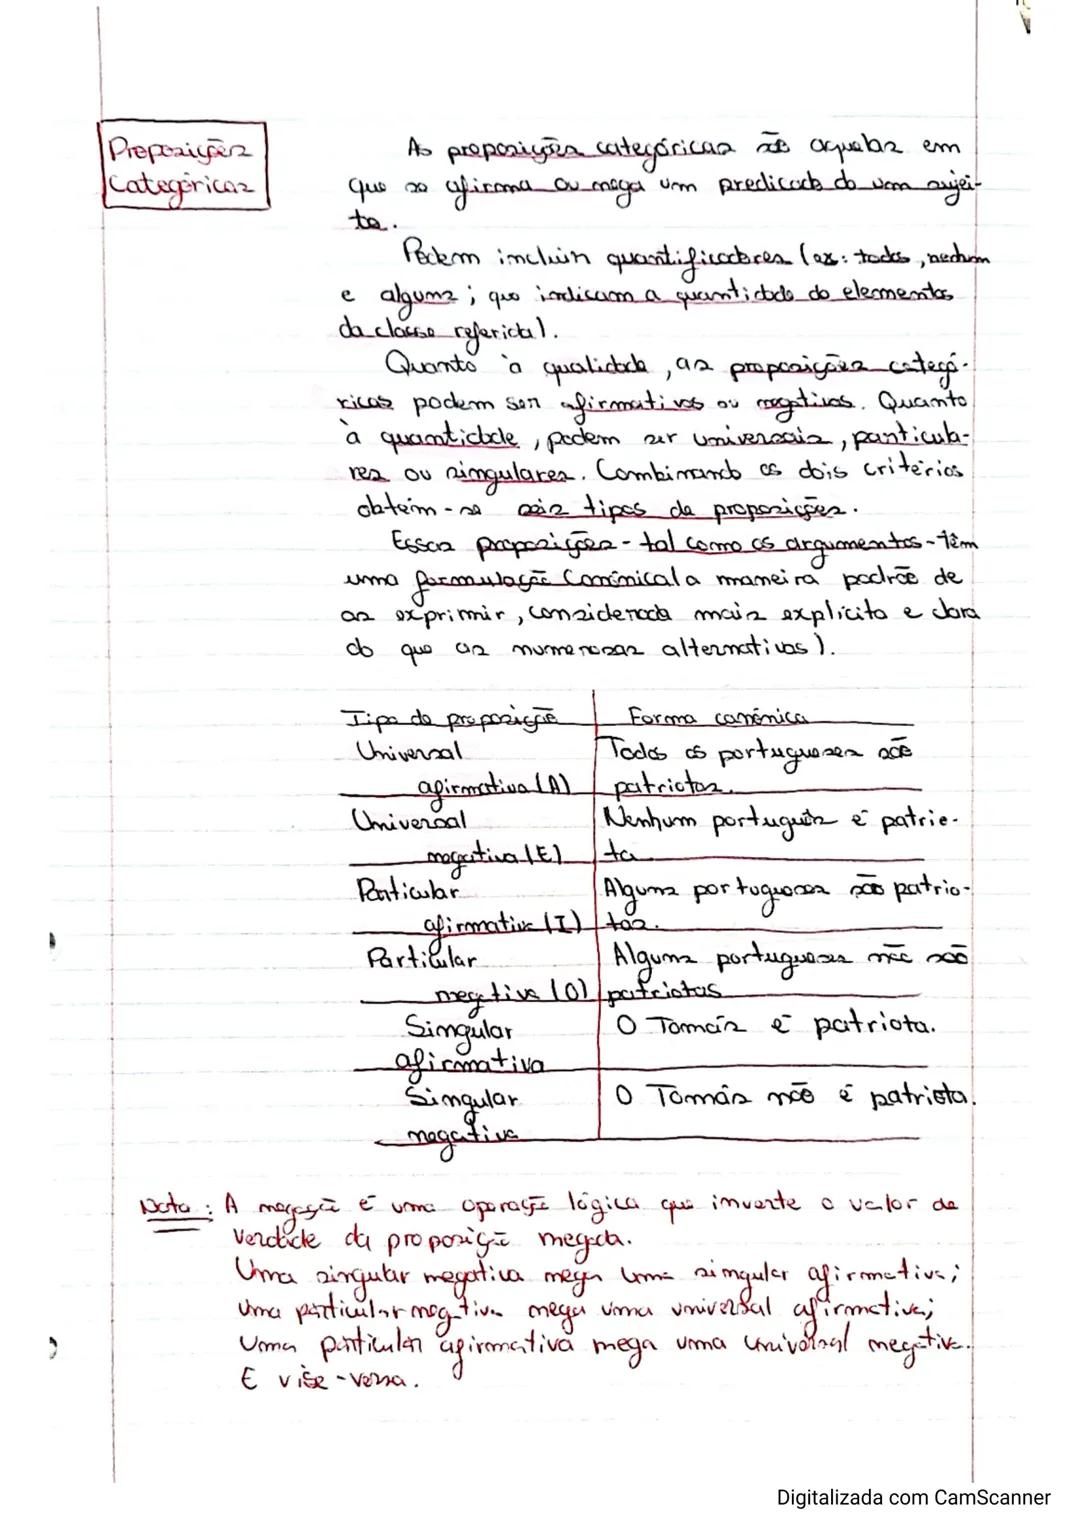 Proposições
Categóricas
As proposições categóricas são aquelas em
que se afirma ou nega um predicado do um sujei-
to.
Podem incluir quantificadores (ex: todos, nenhum
e alguns; que indicam a quantidade de elementos
da classe referida).
Quanto à qualidade, as proposições categó-
ricas podem ser afirmativas ou negativas. Quanto
à quantidade, podem ser universais, particula-
res ou singulares. Combinando os dois critérios
obtém-se seis tipos de proposições.
Essas proposições - tal como os argumentos - têm
uma formulação Canónica(a maneira padrão de
as exprimir, considerada mais explícita e clara
do que as numerosas alternativas).
Tipo de proposição Forma canónica
Universal Todos os portugueses são
afirmativa (A) patriotas.
Universal Nenhum português é patrio-
negativa (E) ta
Particular Alguns portugueses são patrio-
afirmativa (I) tas.
Particular Alguns portugueses não são
negativa (O) patriotas
Singular O Tomás é patriota.
afirmativa
Singular O Tomás não é patriota.
negativa
Nota: A negação é uma operação lógica que inverte o valor de
verdade da proposição negada.
Uma singular negativa nega uma singular afirmativa;
uma particular negativa nega uma universal afirmativa;
Uma particular afirmativa nega uma universal negativa.
E vise-versa.
Digitalizada com CamScanner